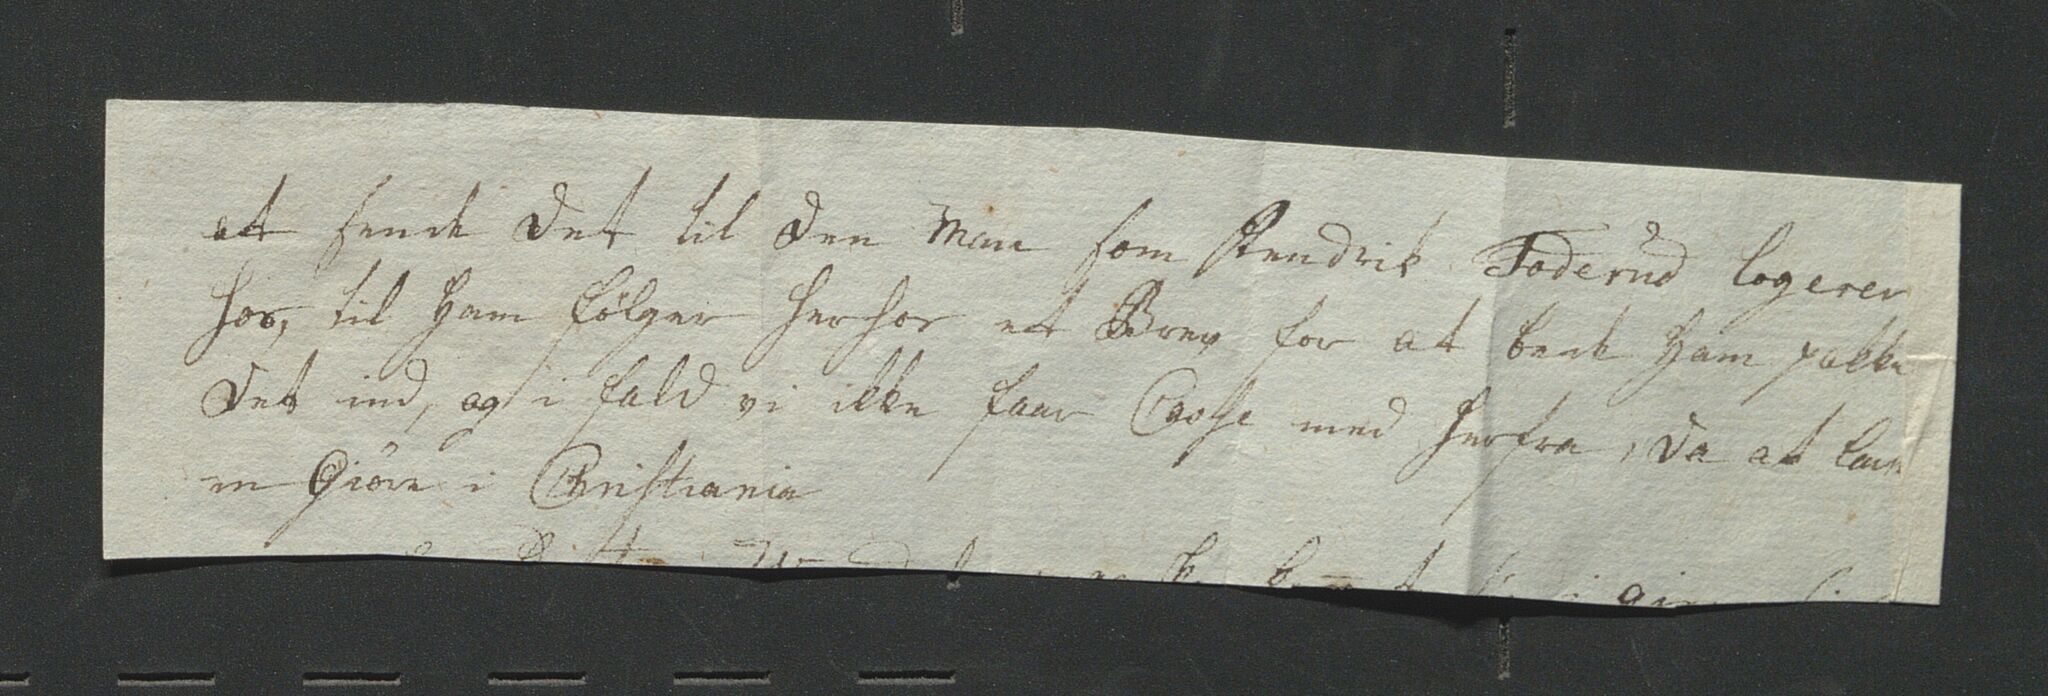 at sende Det til Den Man som Hendrik Foderud logerer
hos, til Ham følger herhos et Brev for at bede Ham pakke
Det ind, og i fald vi ikke faar Casse med herfra, Da at lade
en Giøre i Christiania